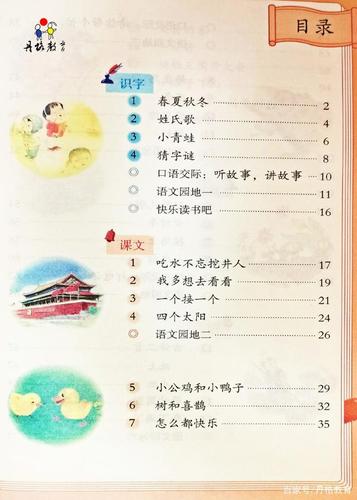 丹格教育
目录
识字
1 春夏秋冬 2
2 姓氏歌 4
3 小青蛙 6
4 猜字谜 8
◎ 口语交际：听故事，讲故事 10
◎ 语文园地一 11
◎ 快乐读书吧 16
课文
1 吃水不忘挖井人 17
2 我多想去看看 19
3 一个接一个 21
4 四个太阳 24
◎ 语文园地二 26
5 小公鸡和小鸭子 29
6 树和喜鹊 32
7 怎么都快乐 35
百家号/丹格教育